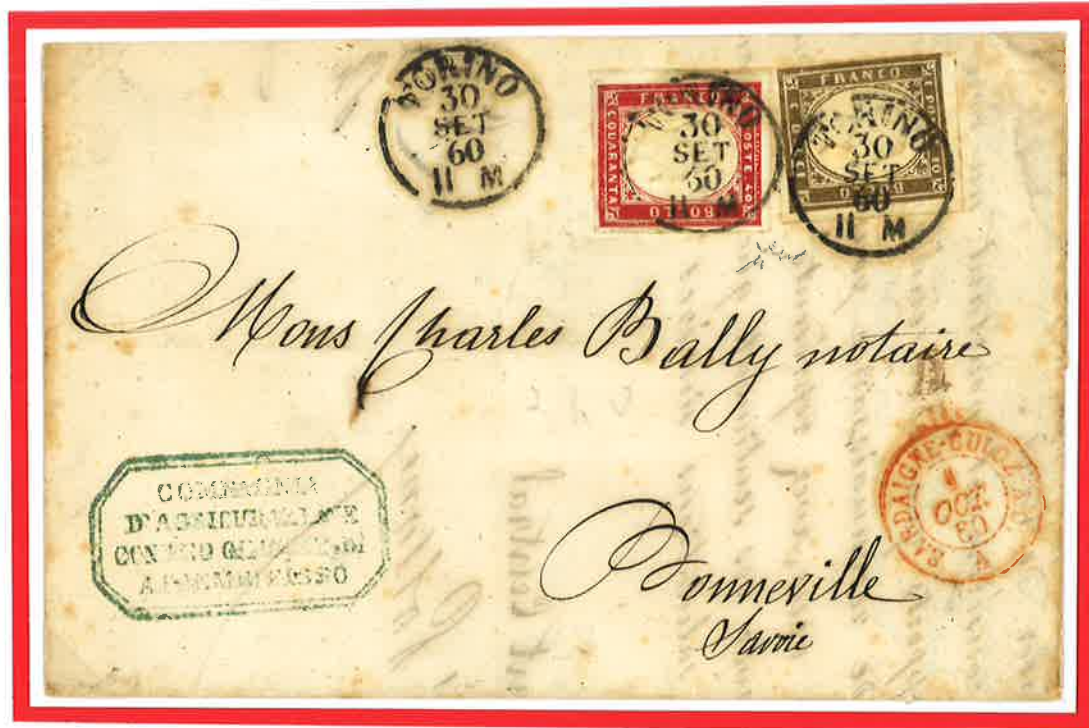 TORINO
30
SET
60
11 M
FRANCO
QUARANTA
BOLLO
TORINO
30
SET
60
11 M
FRANCO
BOLLO
TORINO
30
SET
60
11 M
Mons Charles Bally notaire
COMPAGNIA
D'ASSICURAZIONE
CONTRO
A PREMIO FISSO
OCT
60
A
Bonneville
Savoie